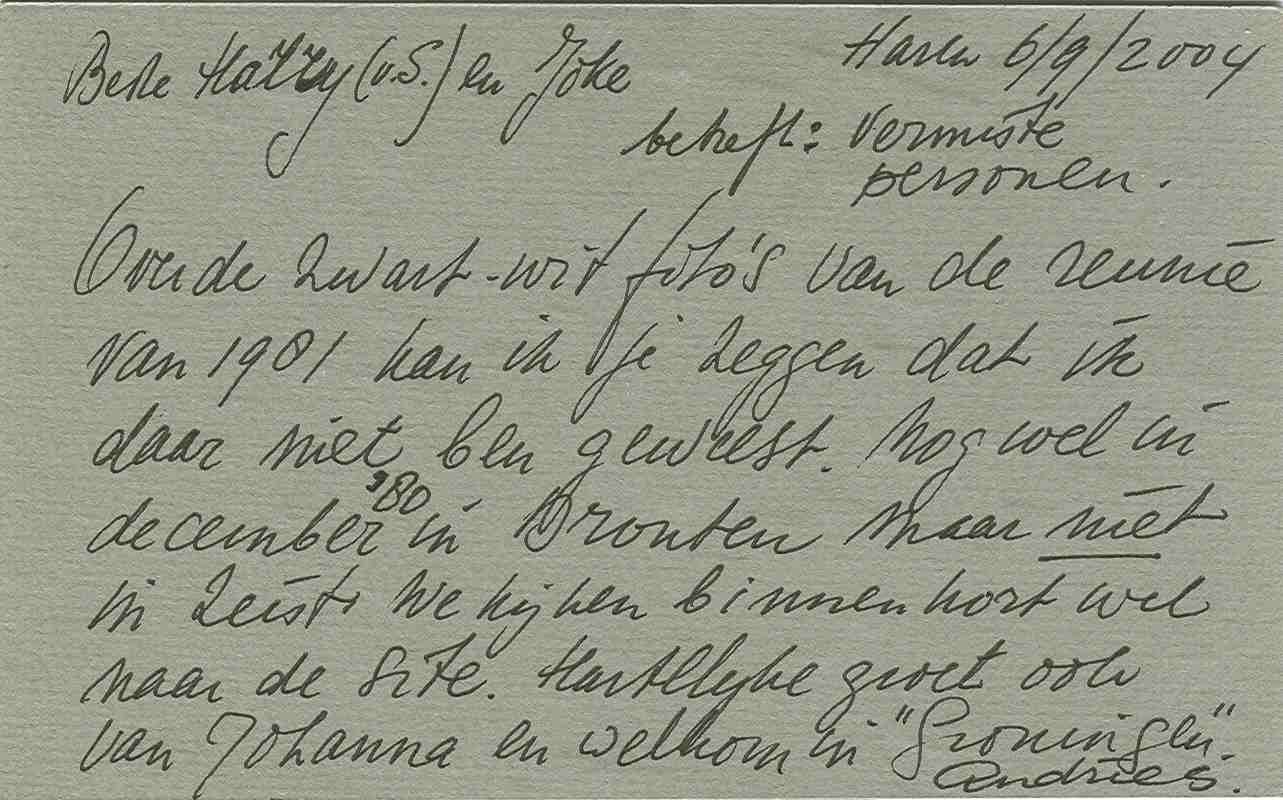 Beste Harry (v.S.) en Joke
Haren 6/9/2004
betreft: Vermiste
personen.
Over de zwart-wit foto's van de reunie
van 1981 kan ik je zeggen dat ik
daar niet ben geweest. Nog wel in
december '80 in Dronten maar niet
in Zeist. We kijken binnenkort wel
naar de site. Hartelijke groet ook
van Johanna en welkom in "Groningen".
Andries.